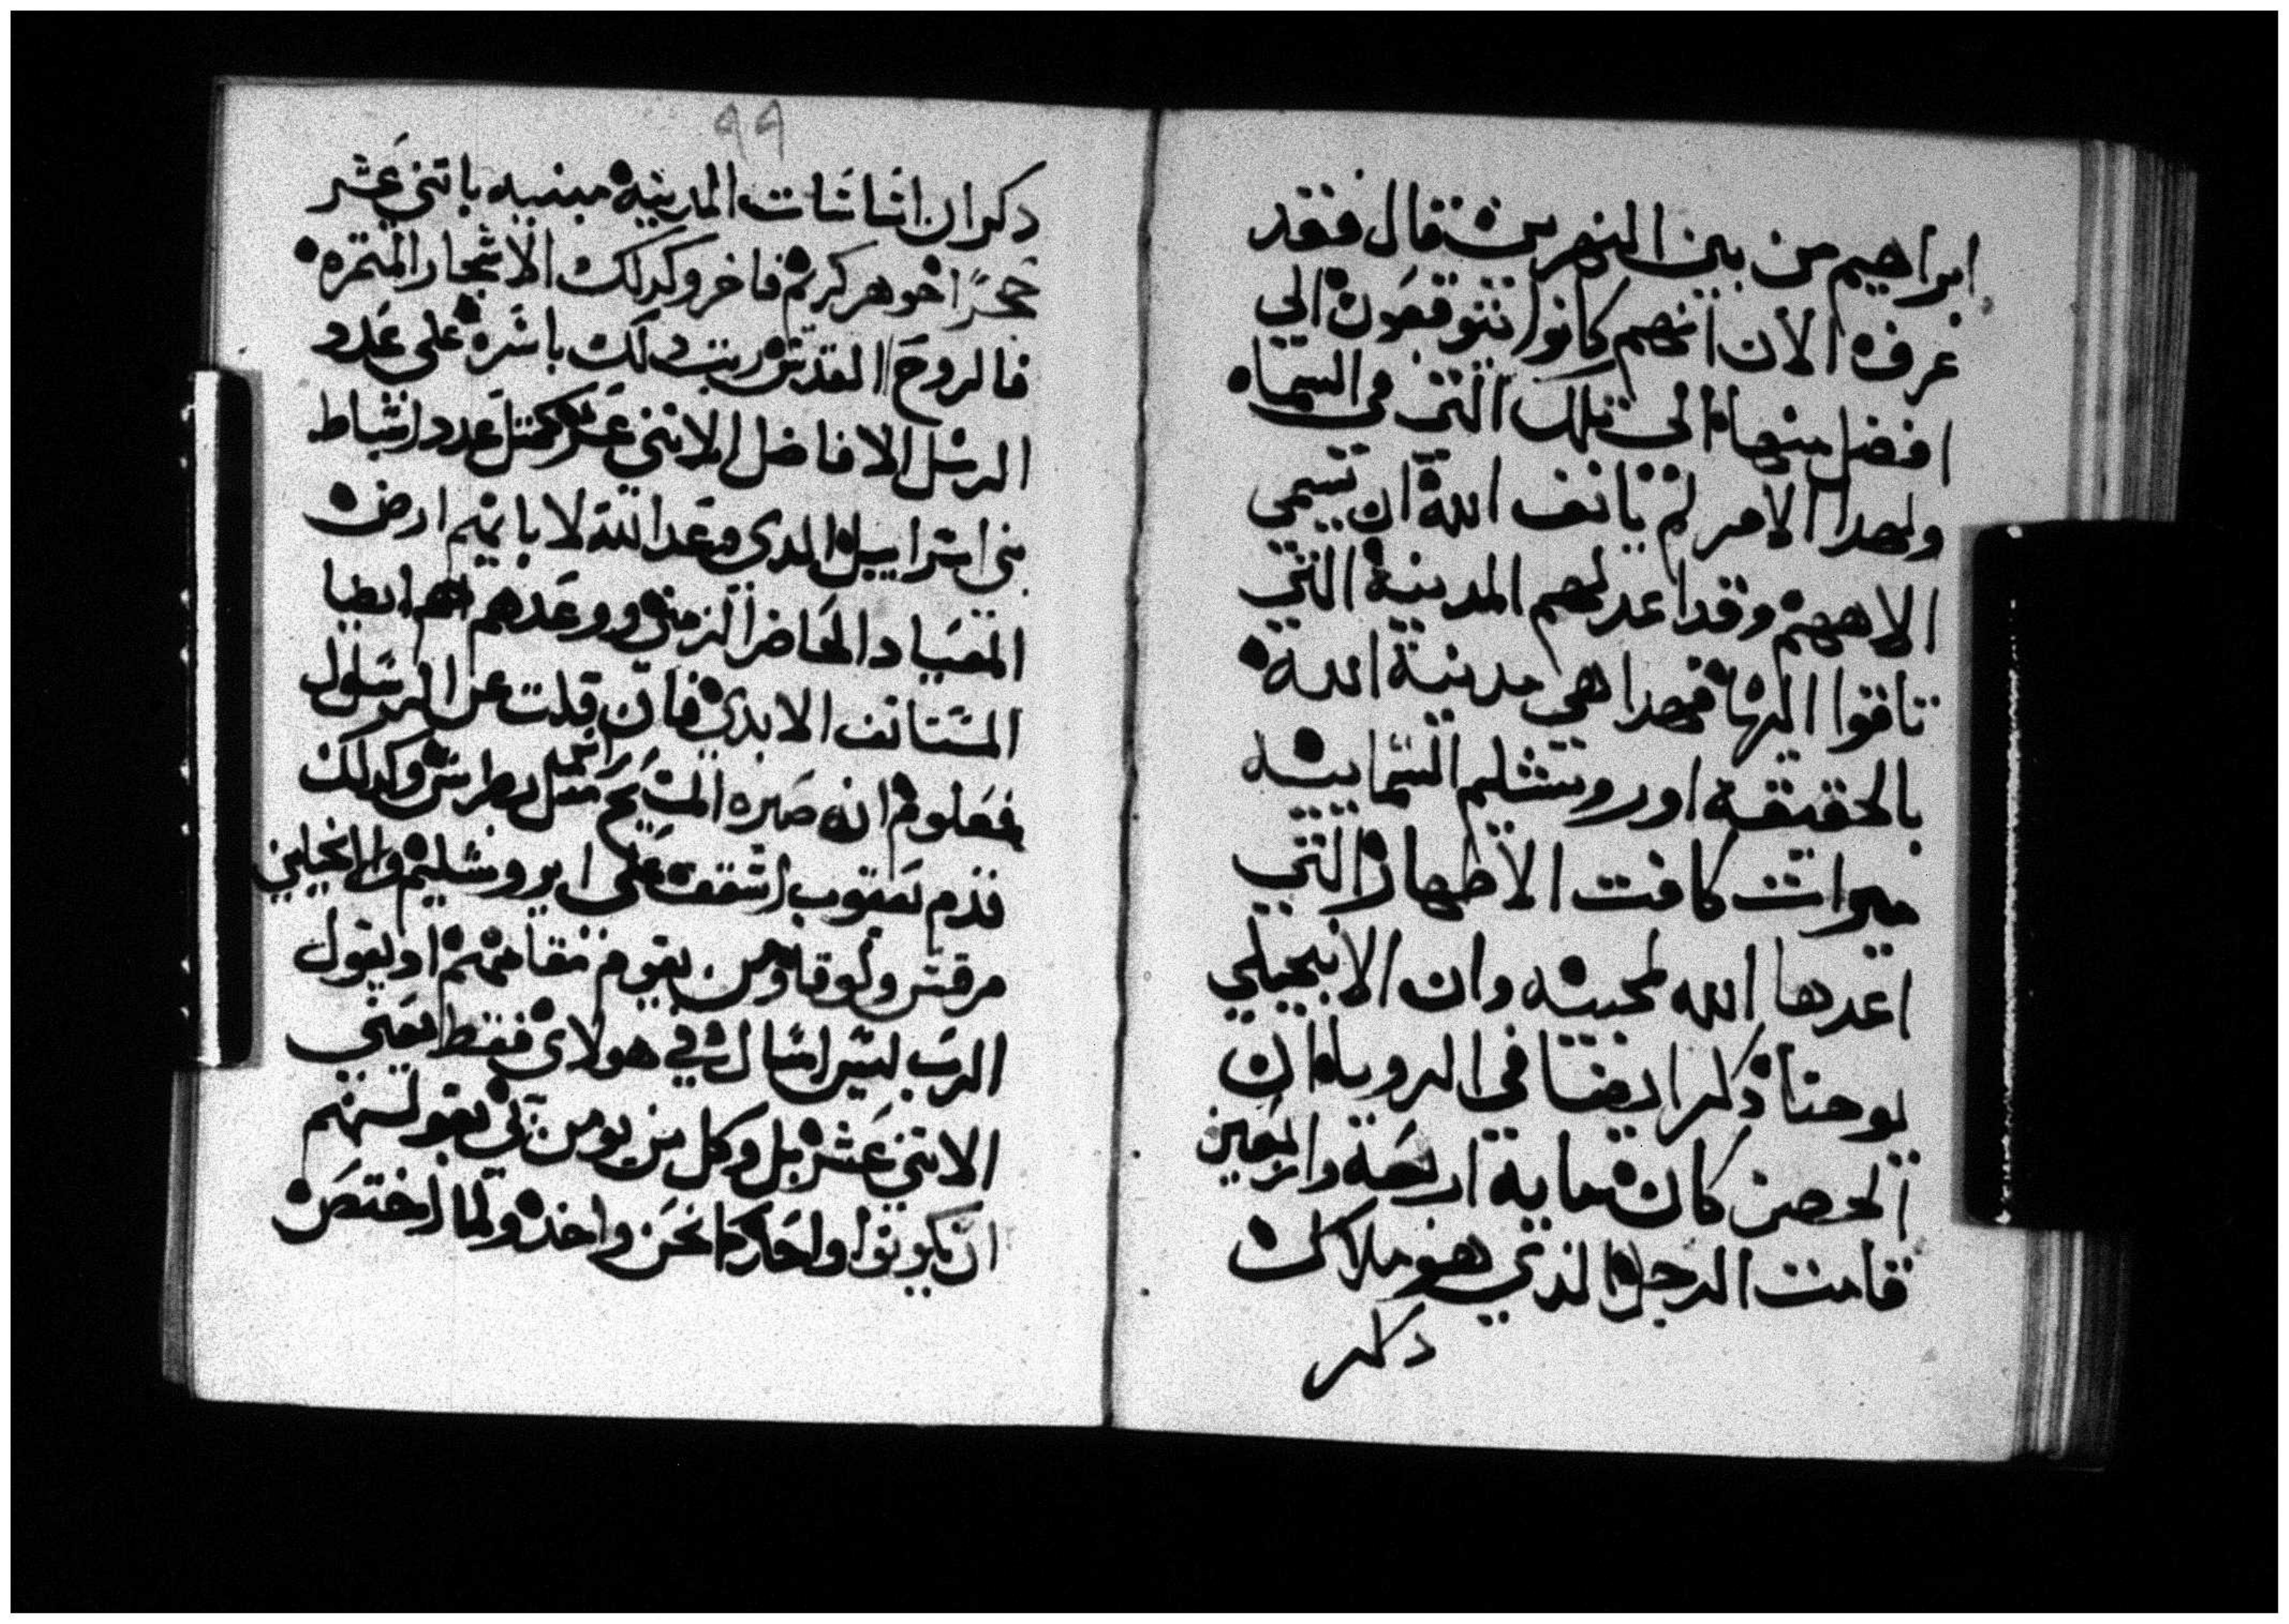 ابراهيم من بين النهرين قال فقد
عرف الان انهم كانوا يتوقعون الي
افضل منها الي تلك التي في السماه
ولهدا الامر لم يانف الله ان يسمي
الاههم وقد اعد لهم المدينة التي
تاقوا اليها فهدا هي مدينة الله
بالحقيقة اورونشليم السماييه
ميرات كافت الاطهار التي
اعدها الله لمحبيه وان الانجيلي
يوحنا ذكر ايضا في الرويا ان
الحصن كان مايه اربعة واربعين
قامت الرجل الذي هو ملاك
دكر
٩٩
دكر ان اساسات المدينه مبنيه باتني عشر
حجرًا جوهر كريم فاخر وكدلك الاشجار المتمره
فالروح القدس رتب دلك باسره علي عدد
الرسل الافاضل الاتني عشر كمتل عدد اسباط
بني اسراييل الدي وعد الله لابايهم ارض
الميعاد الحاضر الزمني ووعدهم هم ايضا
المستانف الابدي فان قلت عن الرسول
فمعلوم انه صيره المسيح راس مثل بطرس وكدلك
قدم يعقوب اسقف علي ايروشليم والانجيلين
مرقس ولوقا ومن يقوم مقامهم او يقول
الرب ليس اسال في هولاي فقط يعني
الاتني عشر بل وكل من يومن بي بقولهم
ان يكونوا واحد كما نحن واحد ولما اختص